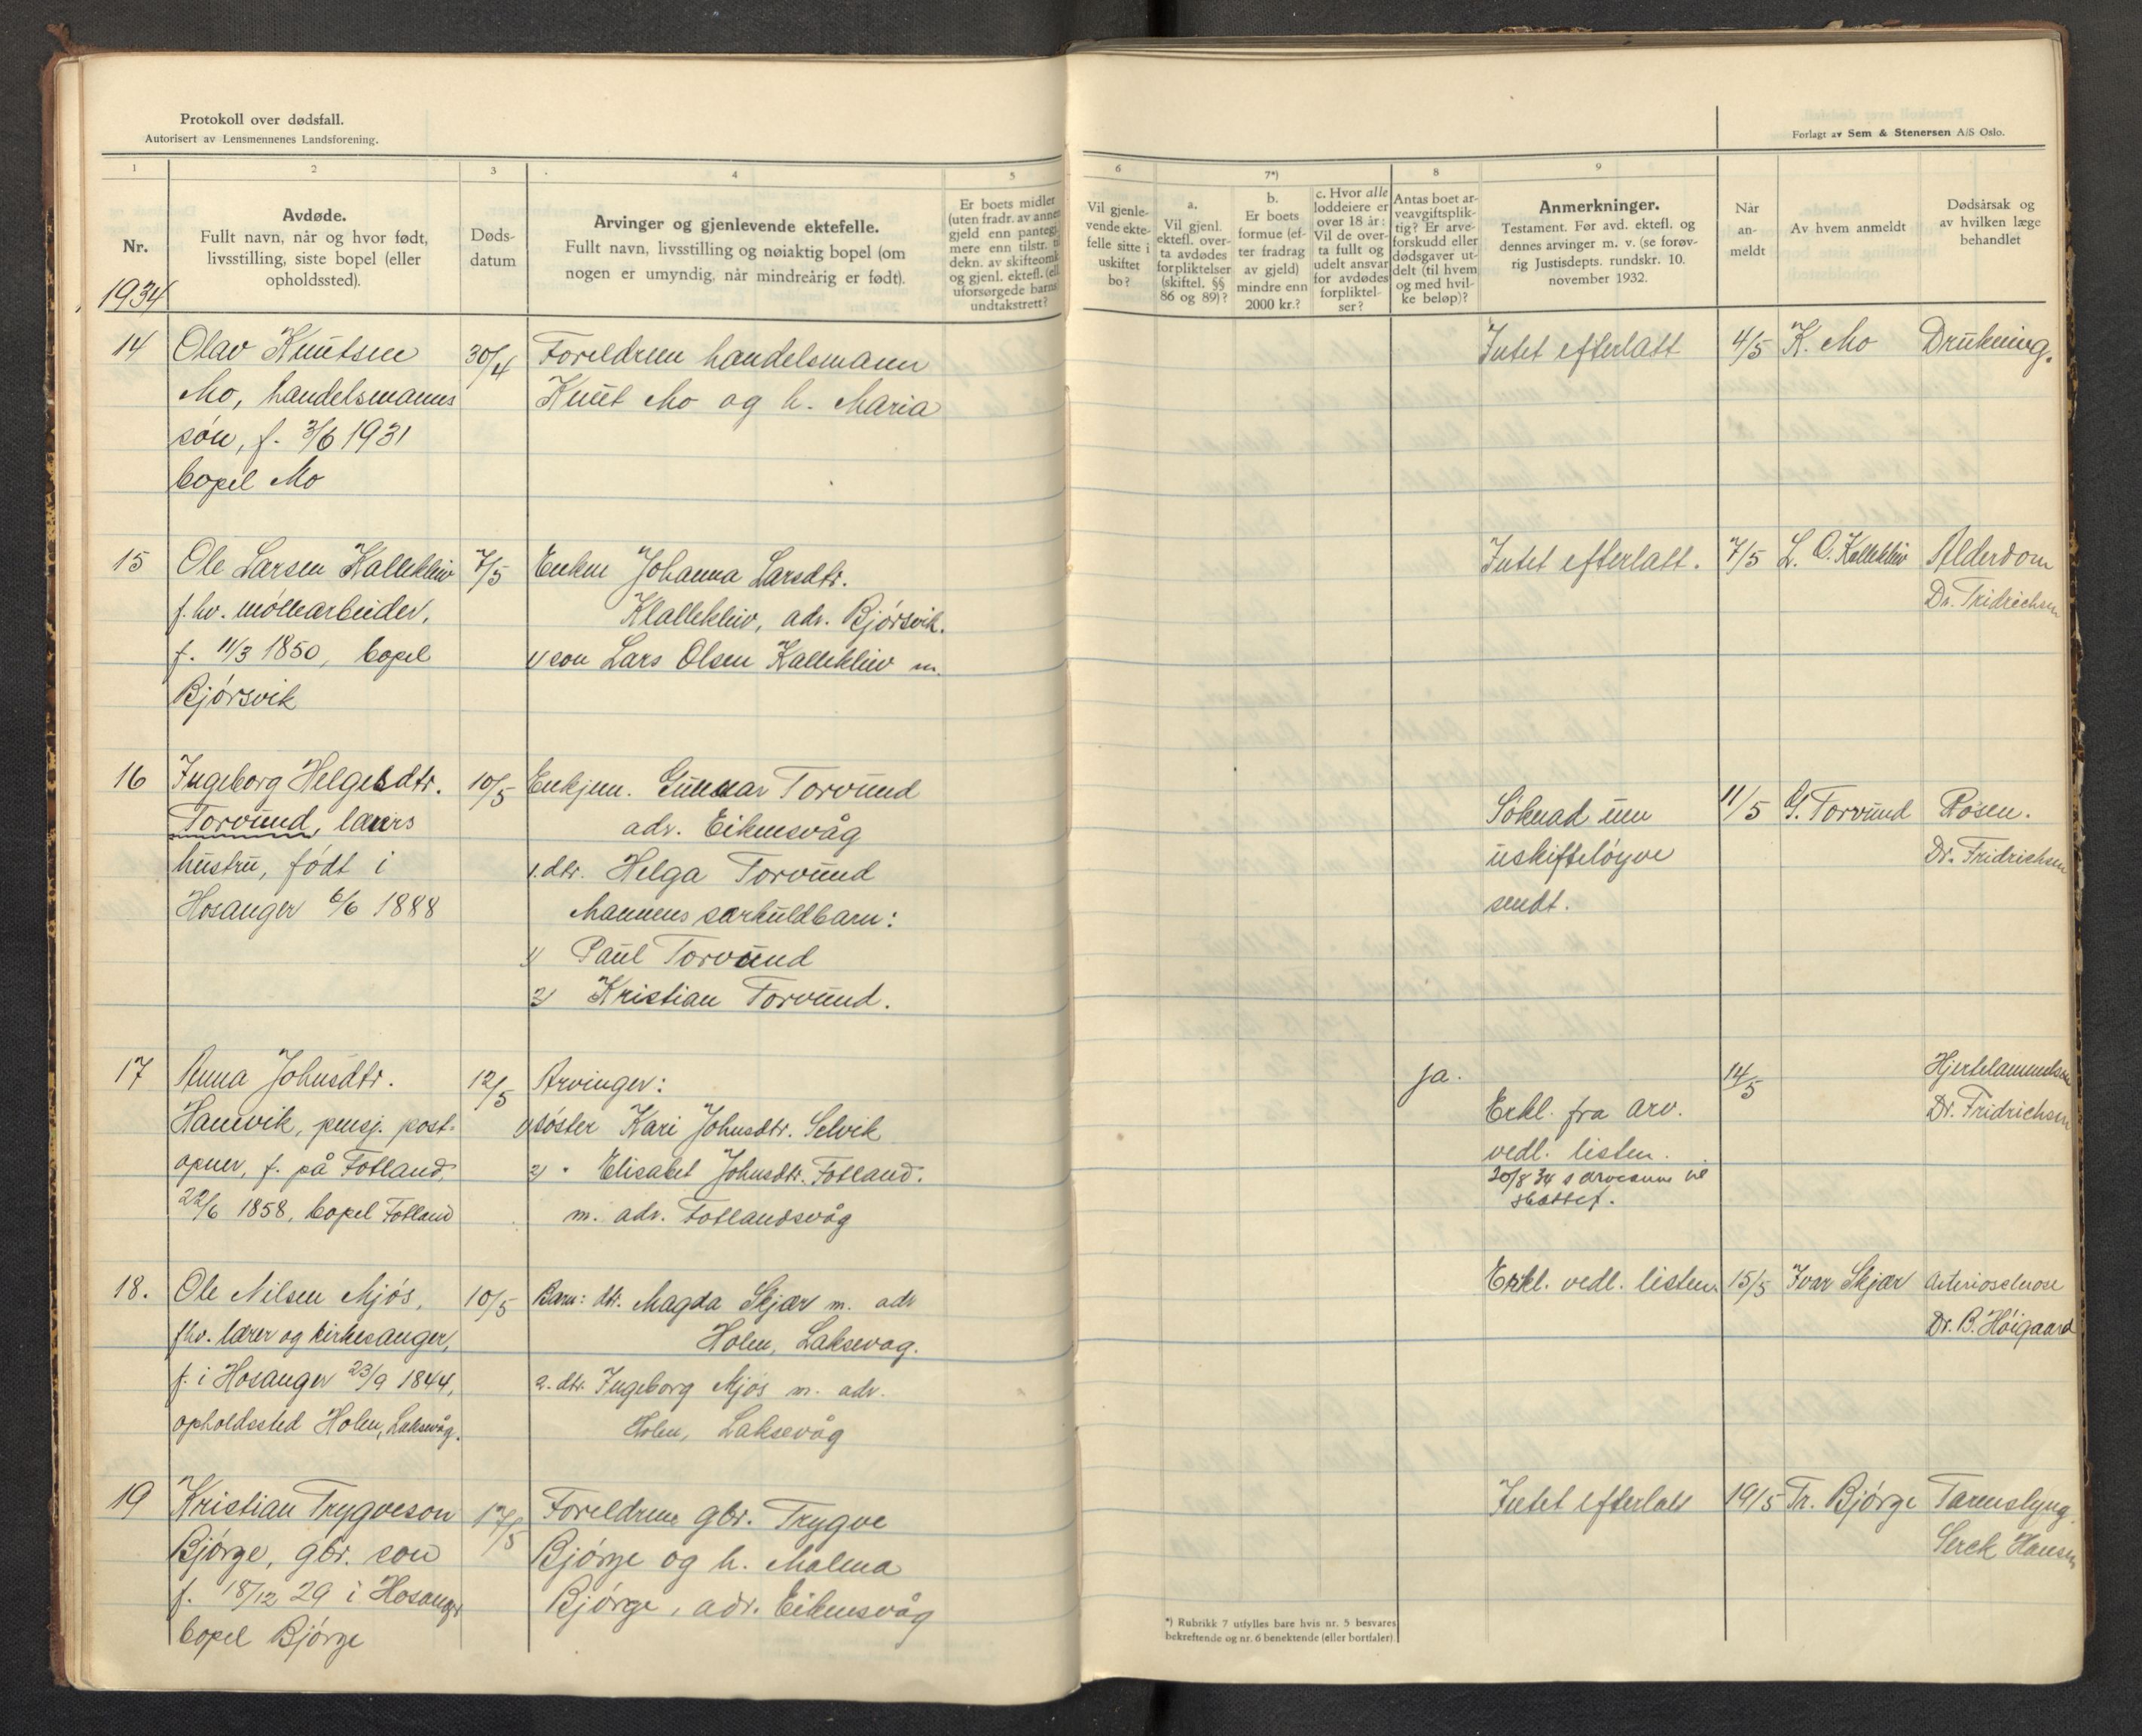 Protokoll over dødsfall.
Autorisert av Lensmennenes Landsforening.
Forlagt av Sem & Stenersen A/S Oslo.
1
2
3
4
5
6
7*)
8
9
Nr.
Avdøde.
Fullt navn, når og hvor født,
livsstilling, siste bopel (eller
opholdssted).
Døds-
datum
Arvinger og gjenlevende ektefelle.
Fullt navn, livsstilling og nøiaktig bopel (om
nogen er umyndig, når mindreårig er født).
Er boets midler
(uten fradr. av annen
gjeld enn pantegj.
mere enn tilstr. til
dekn. av skifteomk.
og gjenl. ektef. (ell.
uforsørgede barns)
undtakstrett?
Vil gjenle-
vende ekte-
felle sitte i
uskiftet
bo?
a.
Vil gjenl.
ektefl. over-
ta avdødes
forpliktelser
(skiftel. §§
86 og 89)?
b.
Er boets
formue (ef-
ter fradrag
av gjeld)
mindre enn
2000 kr.?
c. Hvor alle
loddeiere er
over 18 år:
Vil de over-
ta fullt og
udelt ansvar
for avdødes
forpliktel-
ser?
Antas boet ar-
veavgiftsplik-
tig? Er arve-
forskudd eller
dødsgaver ut-
delt (til hvem
og med hvil-
ke beløp)?
Anmerkninger.
Testament. Før avd. ektefl. og
dennes arvinger m. v. (se forøv-
rig Justisdepts. rundskr. 10.
november 1932.
Når
an-
meldt
Av hvem anmeldt
Dødsårsak og
av hvilken læge
behandlet
1934
14 Olav Knutsen 30/4 Foreldren handelsmann Intet efterlatt 4/5 K. Mo Drukning.
Mo, handelsmanns Knut Mo og h. Maria
søn, f. 3/6 1931
bopel Mo
15 Ole Larsen Kallekleiv 7/5 Enken Johanna Larsdtr. Intet efterlatt. 7/5 L. O. Kallekleiv Alderdom
f.hv. møllearbeider, Klallekleiv, adr. Bjørsvik. Dr. Fridrichsen
f. 11/3 1850, bopel 1/ son Lars Olsen Kallekleiv m.
Bjørsvik
16 Ingeborg Helgesdtr. 10/5 Enkjem. Gunnar Torvund Søknad um 11/5 G. Torvund Rosen.
Torvund, lærers adr. Eiknesvåg uskifteløyve Dr. Fridrichsen
hustru, født i 1. dtr. Helga Torvund sendt.
Hosanger 6/6 1888 Mannens særkuldbarn:
1/ Paul Torvund
2/ Kristian Torvund.
17 Anna Johnsdtr. 12/5 Arvinger: ja. 14/5 Hjertelammelse
Hamvik, pensj. post- 1/ søster Kari Johnsdtr. Selvik Erkl. fra arv. Dr. Fridrichsen
opner, f. på Fotland, 2/ " Elisabet Johnsdtr. Fotland. vedl. listen.
22/6 1858, bopel Fotland m. adr. Fotlandsvåg 20/8 34 s arveanm til
skattef.
18. Ole Nilsen Mjøs, 10/5 Barn: dtr. Magda Skjær m. adr Erkl. vedl. listen. 15/5 Ivar Skjær Arteriosclerose
fhv. lærer og kirkesanger, Holen, Laksevag. Dr. B. Høigaard
f. i Hosanger 23/9 1844, 2. dtr. Ingeborg Mjøs m. adr.
opholdssted Holen, Laksevåg. Holen, Laksevåg
19 Kristian Trygveson 17/5 Foreldrene gbr. Trygve Intet efterlatt 19/5 Tr. Bjørge Tarmslyng.
Bjørge, gbr. son Bjørge og h. Malma Serck Hansen
f. 18/12 29 i Hosanger Bjørge, adr. Eiknesvåg
bopel Bjørge
*) Rubrikk 7 utfylles bare hvis nr. 5 besvares
bekreftende og nr. 6 benektende (eller bortfaler).